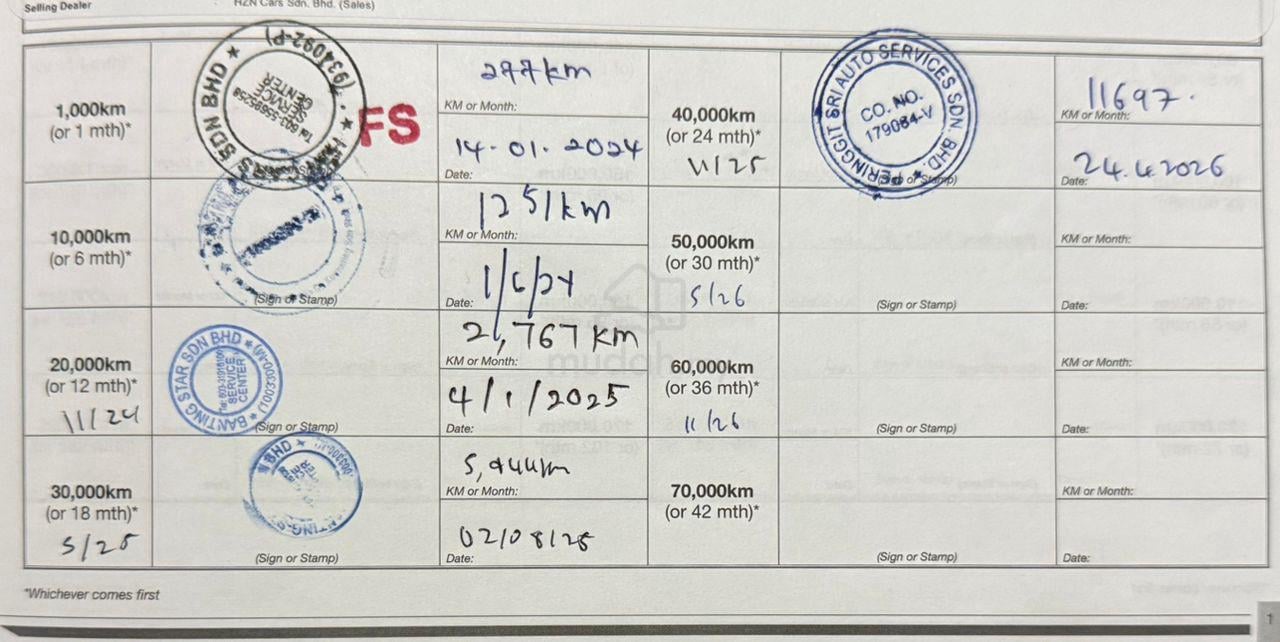 Selling Dealer
HZN Cars Sdn. Bhd. (Sales)
1,000km
(or 1 mth)*
(934092-P)
SDN BHD
SERVICE CENTER
Tel: 603-55695258
FS
277km
KM or Month:
14-01-2024
Date:
10,000km
(or 6 mth)*
(Sign or Stamp)
1251km
KM or Month:
1/6/24
Date:
20,000km
(or 12 mth)*
11/24
BANTING STAR SDN BHD
SERVICE CENTER
(Sign or Stamp)
2,767 km
KM or Month:
4/1/2025
Date:
30,000km
(or 18 mth)*
5/25
BHD
(Sign or Stamp)
5,944km
KM or Month:
02/08/25
Date:
40,000km
(or 24 mth)*
11/25
PERINGGIT SRI AUTO SERVICES SDN. BHD.
CO. NO.
179084-V
(Sign or Stamp)
11697.
KM or Month:
24.4.2026
Date:
50,000km
(or 30 mth)*
5/26
(Sign or Stamp)
KM or Month:
Date:
60,000km
(or 36 mth)*
11/26
(Sign or Stamp)
KM or Month:
Date:
70,000km
(or 42 mth)*
(Sign or Stamp)
KM or Month:
Date:
mudah.my
*Whichever comes first
1